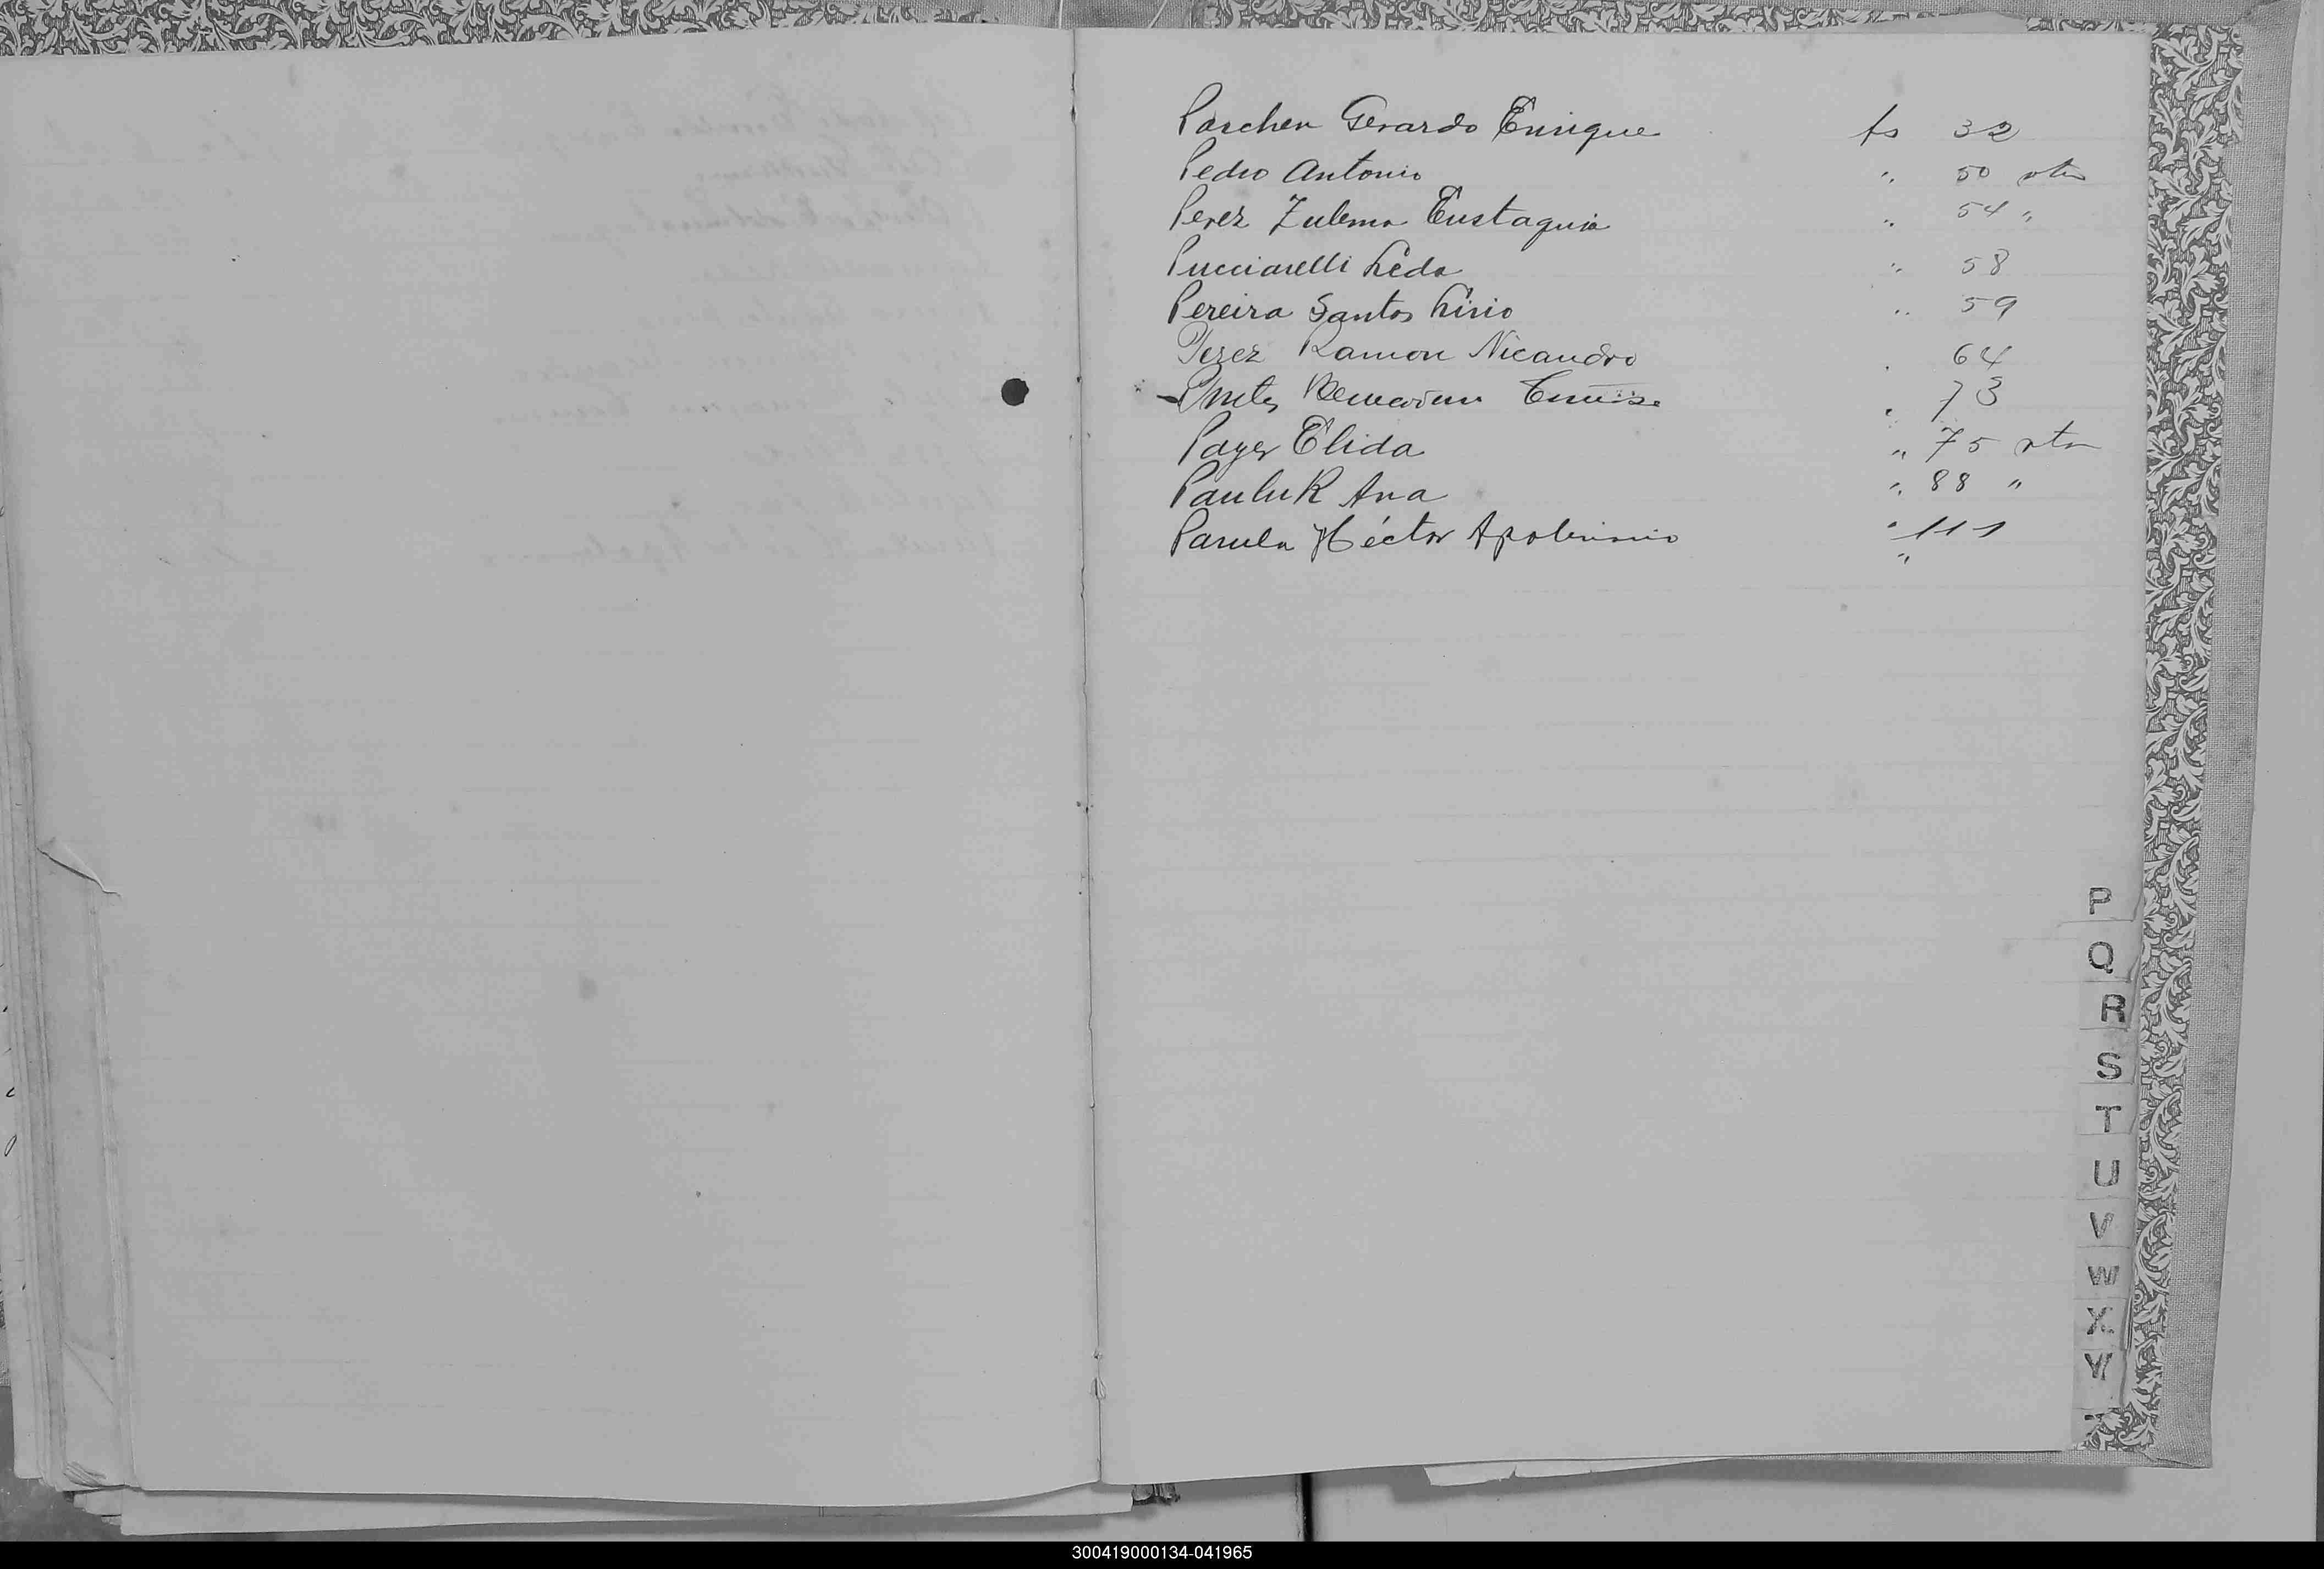 Paschen Gerardo Enrique fs 32
Pedro Antonio " 50 vta
Perez Zulema Eustaquia " 54 "
Pucciarelli Leda " 58
Pereira Santos Lirio " 59
Perez Ramon Nicandro " 64
" 73
Payer Elida " 75 vta
Pauluk Ana " 88 "
Héctor Apolinario " 111
"
P
Q
R
S
T
U
V
W
X
Y
300419000134-041965